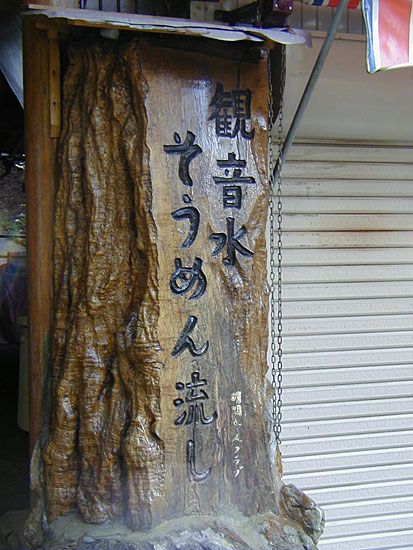 観音水
そうめん流し